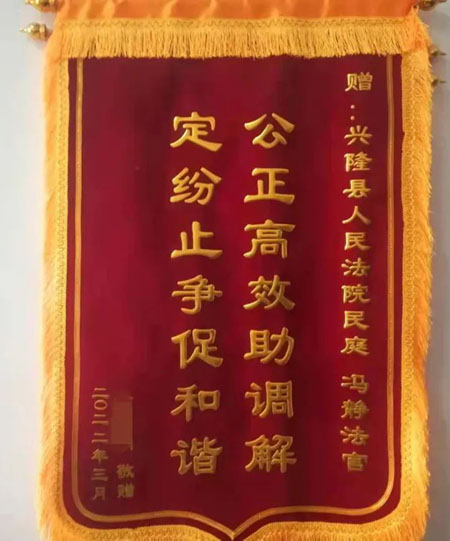 赠：兴隆县人民法院民庭 冯静法官
公正高效助调解
定纷止争促和谐
敬赠
二〇二二年三月